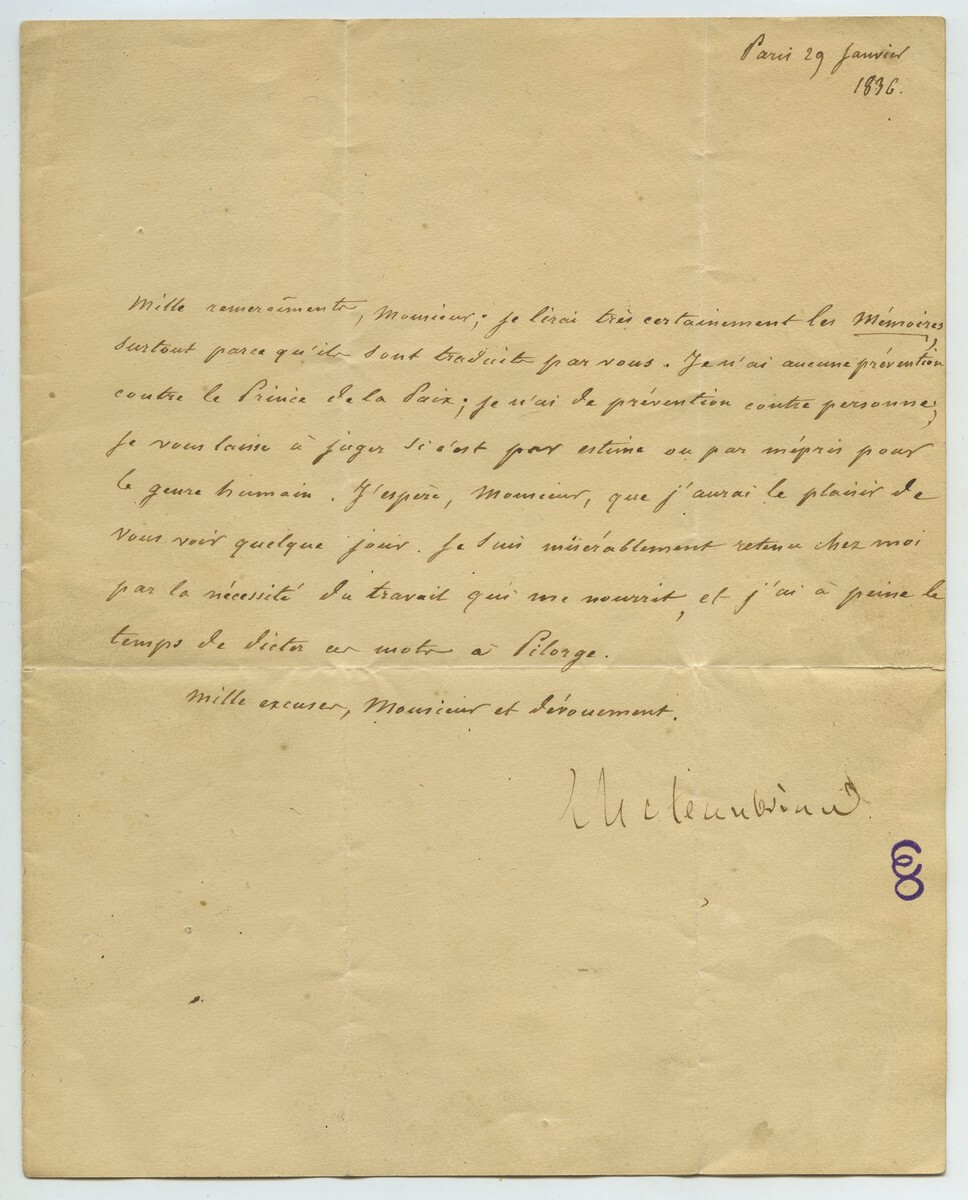 Paris 29 Janvier
1836.
Mille remercîments, Monsieur; je lirai très certainement les Mémoires,
surtout parce qu'ils sont traduits par vous. Je n'ai aucune prévention
contre le Prince de la Paix; je n'ai de prévention contre personne;
je vous laisse à juger si c'est par estime ou par mépris pour
le genre humain. J'espère, Monsieur, que j'aurai le plaisir de
vous voir quelque jour. Je suis misérablement retenu chez moi
par la nécessité du travail qui me nourrit, et j'ai à peine le
temps de dicter ces mots à Pilorge.
Mille excuses, Monsieur et dévouement.
Chateaubriand